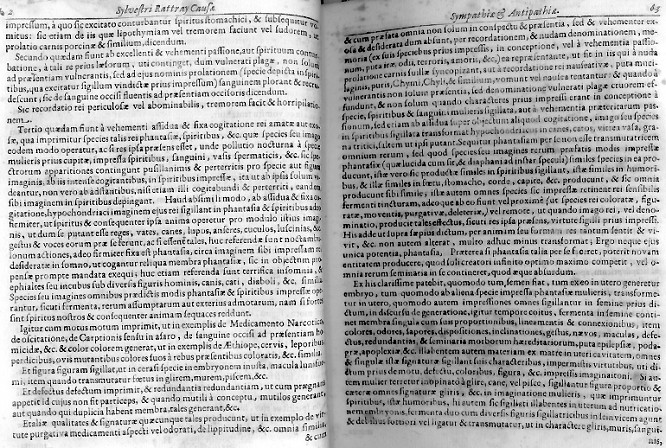 2 Sylvestri Rattray Causæ
impressum, à quo sic excitato conturbantur spiritus stomachici, & subsequitur vo-
mitus: sic etiam de iis quæ lipothymiam vel tremorem faciunt vel sudorem, ut
prolatio carnis porcinæ & similium, dicendum.
Secundo quædam fiunt ab excellenti & vehementi passione, aut spirituum contur-
batione, à tali re prius læsorum, uti contingit, dum vulnerati plagæ, non solum
ad præsentiam vulnerantis, sed ad ejus nominis prolationem (specie depicta in spiri-
tibus, qua excitatur sigillum vindictæ prius impressum) sanguinem plorant & recru-
descunt; sic de sanguine occisi fluentis ad præsentiam occisoris dicendum.
Sic recordatio rei periculosæ vel abominabilis, tremorem facit & horripilatio-
nem.
Tertio quædam fiunt à vehementi assidua & fixa cogitatione rei amatæ aut exo-
sæ, qua imprimitur species talis rei phantasiæ, spiritibus, &c. quæ species seu imago
eodem modo operatur, ac si res ipsa præsens esset, unde pollutio nocturna à specie
mulieris prius cupitæ, impressa spiritibus, sanguini, vasis spermaticis, &c. sic spe-
ctrorum apparitiones contingunt pusillanimis & perterritis pro specie aut figura
imaginis, ab iis intensè cogitantibus, in spiritibus impressæ, ita ut ab ipsis solum vi-
deantur, non vero ab adstantibus, nisi etiam illi cogitabundi & perterriti, eandem
sibi imaginem in spiritibus depingant. Haud absimili modo, ab assidua & fixa co-
gitatione, hypochondriaci imaginem ejus rei sigillant in phantasia & spiritibus adeò
firmiter, ut spiritus & consequenter ipsa anima operetur pro modulo istius imagi-
nis, ut dum se putant esse reges, vates, canes, lupus, anseres, cuculos, luscinias, &c.
gestus & voces eorum præ se ferunt, ac si essent tales, huc referendæ sunt noctambu-
lonum actiones, adeo firmiter fixa est phantasia, circa imaginem sibi impressam rei
desideratæ in somno, ut cogantur reliqua membra phantasiæ, sic in objectum pro-
pensæ promptè mandata exequi; huc etiam referenda sunt terrifica insomnia, &
ephialtes seu incubus sub diversis figuris hominis, canis, cati, diaboli, &c. similia.
Species seu imagines omnibus prædictis modis phantasiæ & spiritibus impressæ ope-
rantur, sicuti fermenta, rerum adsumptarum aut exterius admotarum, nam si forti-
sint spiritus nostros & consequenter animam sequaces reddunt.
Igitur cum motus motum imprimit, ut in exemplis de Medicamento Narcotico,
de oscitatione, de Carptionis sensu in asaro, de sanguine occisi ad præsentiam ho-
micidæ, &c. & color colorem generat, ut in exemplis de Æthiope, cervis, leporibus
perdicibus, ovis mutantibus colores suos à rebus præsentibus coloratis, &c. similia.
Et figura figuram sigillat, ut in cerasi specie in embryonem inusta, macula lumbi-
mi, item quando transmutatur fœtus in glirem, murem, piscem, &c.
Et defectus defectum imprimit, & redundantia redundantiam, ut cum prægnans
appetit id cujus non fit particeps, & quando mutili à conceptu, mutilos generant,
aut quando qui duplicia habent membra, tales generant, &c.
Et alias qualitates & signaturæ quæcunque tales producunt, ut in exemplo de vir-
tute purgativa medicamenti aspecti vel odorati, de lippitudine, &c. omnia similia
& cum
Sympathiæ & Antipathiæ. 63
& cum præfata omnia non solum in conspectu & præsentia, sed & vehementer ex-
osa & desiderata dum absunt, per recordationem, & nudam denominationem, me-
moria (ex suis speciebus prius impressis) in conceptione, vel à vehementia passio-
num, puta iræ, odii, terroris, amoris, &c.) ea repræsentante, vt puta quando muta
prolatione carnis suillæ syncopizant, aut à recordatione rei nauseativæ, puta muci
lagini, puris, Chymi, Chyli, & similium, vomunt vel nausea tentantur: & quando à
vulnerantis non solum præsentia, sed denominatione plagæ sanguinem effundunt, &
non solum quando characteres prius impressi erant in conceptione à
specie & figura in sanguine mulieris sigillata, aut à vehementia præteritarum pas-
sionum, sed etiam ab assiduo super objectum aliquod cogitatione, imago seu species
in spiritibus sigillata transformat hypochondriacos in canes, catos, vitra vasa, gra-
na tritici, saltem ut ipsi putant. Sequitur phantasiam per sensum esse transmutatricem
omnium rerum, sed quod species seu imagines rerum præfatis modis impressæ
phantasiæ (quæ luci data cum sit, & diaphani ad instar specula) similes species in ea pro-
ducunt, istæ vero sic productæ similes in spiritibus sigillant, istæ similes in humori-
bus, & illæ similes in fœtu, stomacho, corde, capite, &c. producunt, & sic omnia
producunt sibi similia; istæ autem omnes species sic impressæ retinent rei sensibilis
fermenti incturam, adeo que ab eo fiunt vel proximè sint species rei coloratæ, figu-
ratæ, moventis, purgativæ, deleteriæ, vel remotè, ut quando imago rei, vel denomi-
natio, producit tales effectus, sicuti res ipsa præsens, virtute sigilli prius impressi.
His adde ut supra ipsius dictum, per animam seu formam res tantum sentit & vi-
vit, &c. non autem alterat, multo adhuc minus transformat; Ergo neque ejus
unica potentia, phantasia. Præterea si phantasia talia per se faceret, poterit novam
entitatem producere, quod soli creatori infinito optimo maximo competit, vel o-
mnia rerum seminaria in se contineret, quod æque absurdum.
Ex his clarissime patebit, quomodo tum semen fiat, tum exeo in utero generetur
embryo, tum quomodo ab aliena specie impressa phantasiæ mulieris, transforme-
tur in utero, quomodo autem impressiones omnes sigillantur in semine prius di-
ctum, in discursu de generatione, igitur tempore coitus, fermenta in semine conti-
net membra singula cum suis proportionibus, lineamentis & connexionibus, item
colores, odores, sapores, dispositiones, inclinationes, gestus, nævos, maculas, defe-
ctus, redundantias, & seminaria morborum hæreditariorum, puta epilepsiæ, poda-
græ, apoplexiæ &c. illa habent autem materiam ex matre in uteri cavitate, omnes
& singulæ istæ signaturæ sigillantis suis characteribus, impermixtis virtutibus, uti di-
ctum prius de motu, defectu, coloribus, figura, &c. impressionibus. Si au-
tem mulier terreatur inopinatò glire, cane, vel pisce, sigillantur figura proportio &
cæteræ omnes signaturæ gliris, &c. in imagine corporeæ specie & consequenter in
spiritibus, istæ spiritus phantasiæ, hi autem sic sigillati diffunduntur ad uterum ad nutricatio-
nem embryonis, fermento duo cum diversis figuris sigillatricibus in fœtu vivam agunt
donec fortius vel ligatur & transmutatur, ut in characteres gliris, muris, sanguis
nis